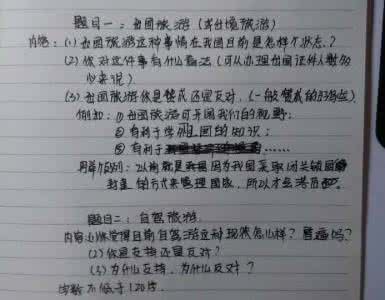 题目一：出国旅游（或出境旅游）
内容：(1) 出国旅游这种事情在我国目前是怎样个状态？
(2) 你对这件事有什么看法（可从办理出国证件人数多
少来说）
(3) 出国旅游你是赞成还是反对，（一般赞成的好些）
例如：① 出国旅游可开阔我们的视野；
② 有利于学 国的知识；
③ 有利于 ……
再举个例：以前就是 因为我国采取闭关锁国
封 方式来管理国家，所以才会落后
题目二：自驾旅游
内容：(1) 你觉得目前自驾游这种现状怎么样？普遍吗？
(2) 你是支持还是反对？
(3) 为什么支持，为什么反对？
字数不低于120字。